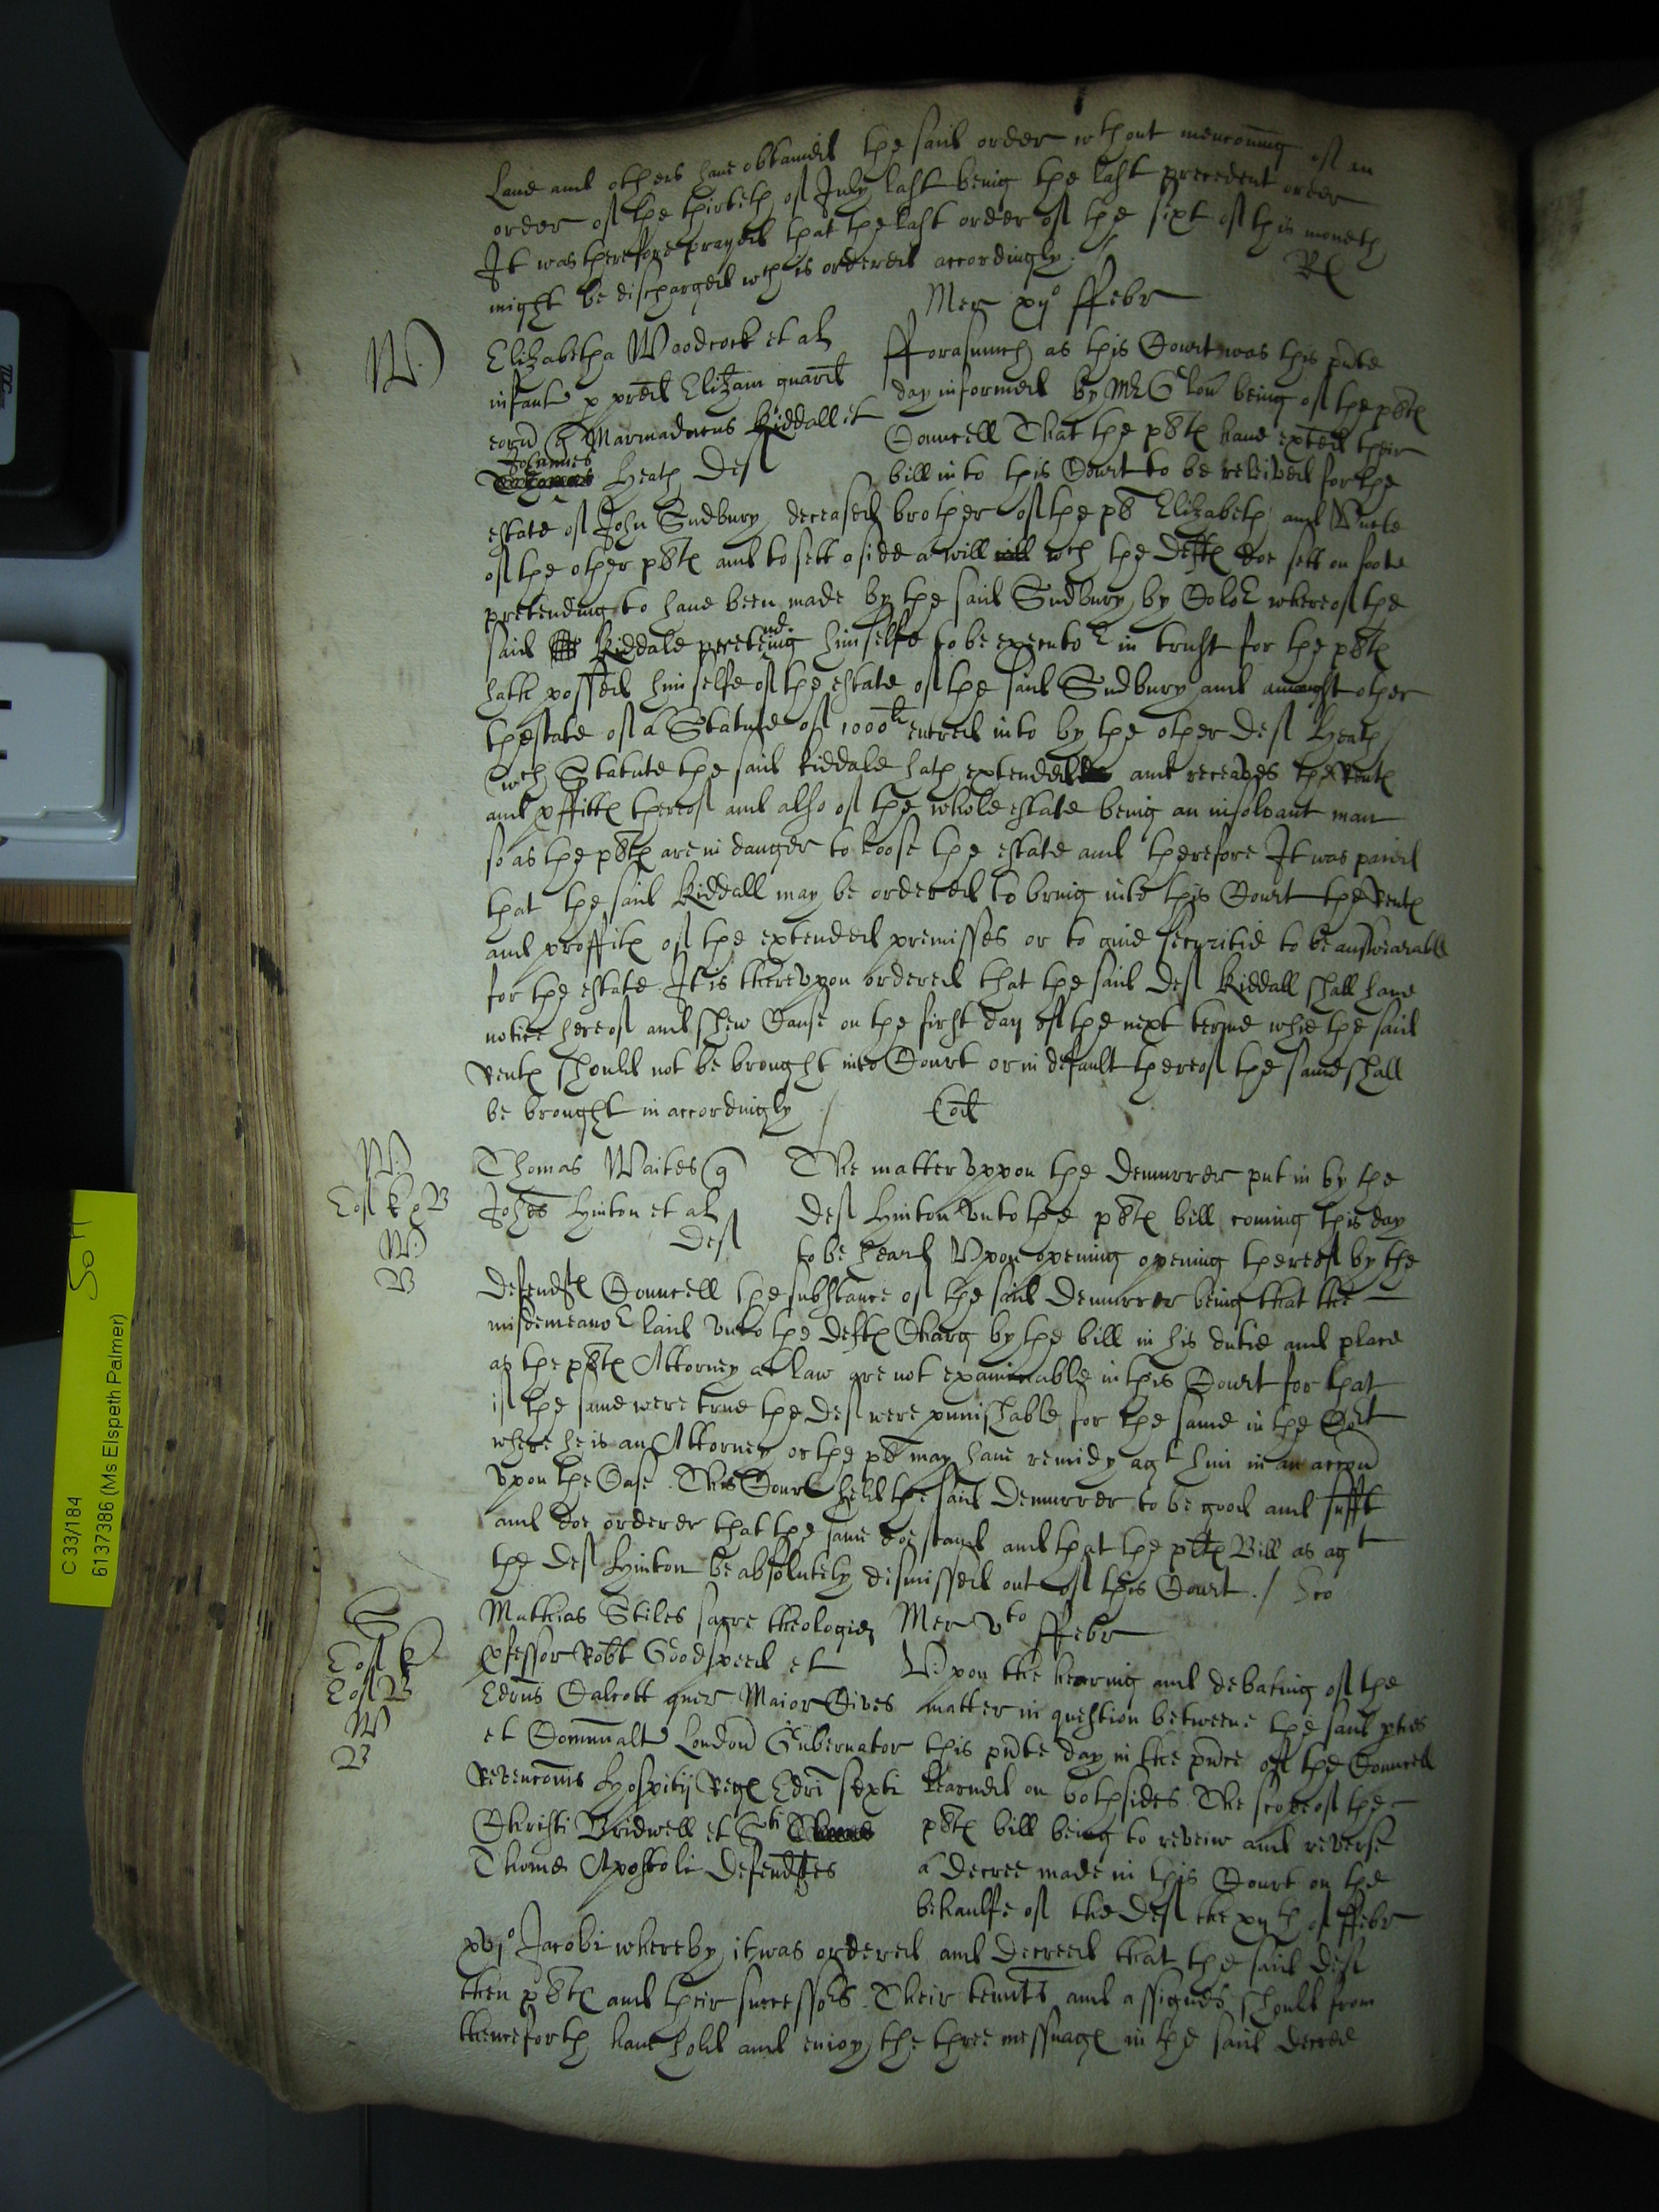 Lane and others have obtained the said order wthout menconing of an
order of the thirteth of July last being the last precedent order
It was therefore prayed that the last order of the sixt of this moneth
might be discharged wch is ordered accordingly. /
Rl
Mer xijo ffebr
W.)
Elizabetha Woodcock et al
infant p pred Elizam guard
eoru q Marmaducus Kiddall et
Johannes
Heath Def
fforasmuch as this Court was this pnte
day informed by Mr being of the plts
Councell That the plts have exhted their
bill into this Court to be releived for the
estate of John Sudbury deceased brother of the pl Elizabeth and Uncle
of the other plts and to sett aside a will will wch the defts doe sett on foote
pretending to have been made by the said Sudbury by Color whereof the
said Kiddale pretending himselfe to be executor in trust for the plts
hath possed himselfe of the estate of the said Sudbury and amongst other
thestate of a Statute of 1000li entred into by the other Def Heath
wch Statute the said Kiddale hath extended and receaves the Rents
and pffitts thereof and also of the whole estate being an insolvant man
so as the plts are in danger to loose the estate and therefore It was praied
that the said Kiddall may be ordered to bring into this Court the Rents
and proffits of the extended premisses or to give securitie to be answearable
for the estate. It is thereupon ordered that the said def Kiddall shall have
notice hereof and shew Cause on the first day of the next terme whie the said
rents should not be brought into Court or in default thereof the same shall
be brought in accordingly /
W.)
Cof k p B
W.)
B
Thomas Waites q
Johes Hinton et al
Def
The matter Uppon the demurrer put in by the
Def Hinton unto the plts bill coming this day
to be heard Upon opening opening thereof by the
defendts Councell the substance of the said demurrer being that the
misdemeanor laid unto the defts Charg by the bill in his dutie and place
as the plts Attorney at law are not examinable in this Court for that
if the same were true the def were punishable for the same in the Cort
where he is an Attorney or the pl may have remidy agt him in an accon
upon the Case. This Court held the said Demurrer to be good and sufft
and doe orderer that the same doe stand and that the plts Bill as agt
the Def Hinton be absolutely dismissed out of this Court. /
Cof k
Cof B
W
B
Mathias Stiles sacre theologie
pfessor Robt Goodspeed et
Edrus Calcott quer Maior Cives
et Comunalt London Gubernator
Revencons Hospitij Regs Edri sexti
Christi Bridwell et Sti
Thome Apostoli defendtes
Mer vto ffebr
Upon the hearing and debating of the
matter in question betweene the said pties
this pnte day in the pnce of the Councell
learned on bothsides. The scope of the
plts bill being to reveiw and reverse
a decree made in this Court on the
behaulfe of the Def the xijth of ffebr
xvjo Jacobi whereby it was ordered and decreed that the said Def
then plts and their successors. Their tennts and assignes should from
thenceforth have hold and enioy the three messuags in the said decree
C 33/184
6137386 (Ms Elspeth Palmer)